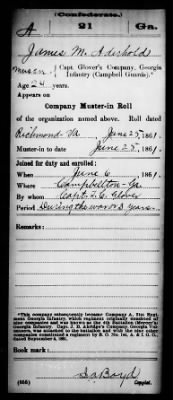 (Confederate.)
A 21 Ga.
James M. Aderhold
, Capt. Glover's Company, Georgia
Infantry (Campbell Guards).*
Age 24 years.
Appears on
Company Muster-in Roll
of the organization named above. Roll dated
Richmond Va June 28, 1861.
Muster-in to date June 28, 1861.
Joined for duty and enrolled:
When June 6, 1861.
Where Campbellton Ga.
By whom Capt. T. C. Glover
Period During the war or 3 years.
Remarks:
*This company subsequently became Company A, 21st Regiment
Georgia Infantry, which regiment originally consisted of
nine companies and was known as the 4th Battalion (Merrys)
Georgia Infantry. Capt. J. B. Akridge's Company, Georgia Volunteers,
was attached to the battalion and with the nine other
companies constituted a regiment by S. O. No.
dated September
Book mark:
(656) Copyist.